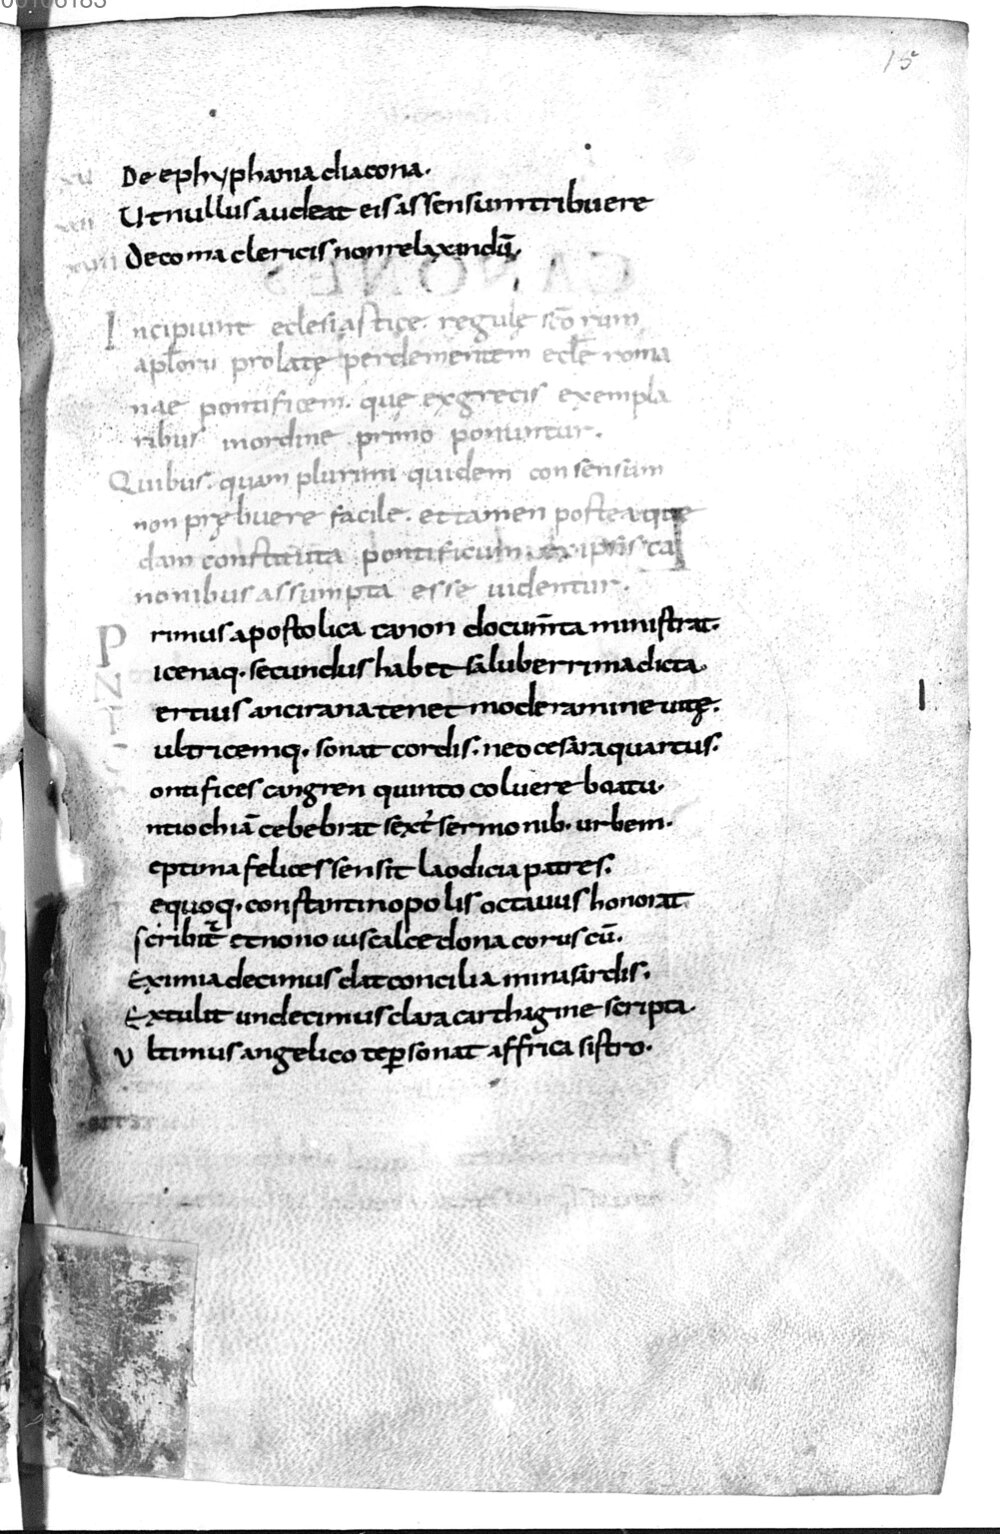 00106183
15
De ephyphania diacona.
Ut nullus audeat eis assensum tribuere
De coma clericis non relaxandū.
Incipiunt eclesiastice. regulę scōrum
aplorū prolatę per clementem eclē roma
nae pontificem. que ex grecis exempla
ribus in ordine primo ponuntur.
Quibus. quam plurimi quidem consensum
non prębuere facile. et tamen postea que
dam constituta pontificum. ex ipsis ca
nonibus assumpta esse uidentur.
Primus apostolica canon documta ministrat.
N icenaq. secundus habet saluberrima dicta.
T ertius ancirana tenet moderamine uitę.
ultricemq. sonat cordis. neocesara quartus.
ontifices cangren quinto coluere boatu.
ntiochiā cebebrat sext sermonib. urbem.
eptima felices sensit laodicia patres.
equoq. constantinopolis octauus honorat
scribit et nono ius calcedona coruscū.
Eximia decimus dat concilia mira sardis.
Extulit undecimus clara carthagine scripta.
Ultimus angelico te psonat affrica sistro.